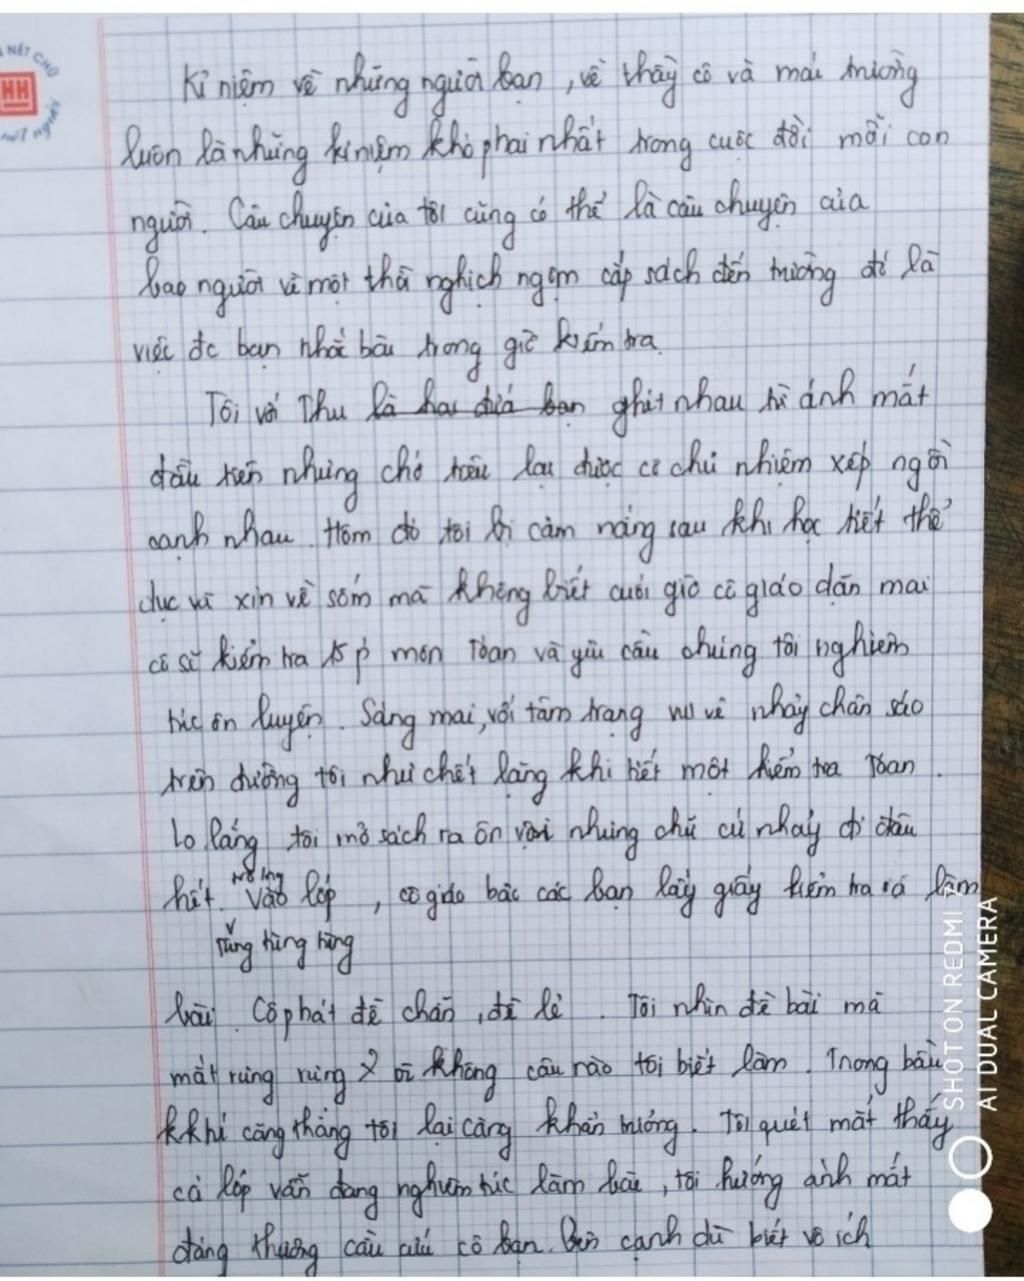 NÉT CHỮ
HH
nết người
Kỉ niệm về những người bạn, về thầy cô và mái trường
luôn là những kỉ niệm khó phai nhất trong cuộc đời mỗi con
người. Câu chuyện của tôi cũng có thể là câu chuyện của
bao người về một thời nghịch ngợm cắp sách đến trường đó là
việc đc bạn nhắc bài trong giờ kiểm tra.
Tôi với Thu là hai đứa bạn ghét nhau từ ánh mắt
đầu tiên nhưng chớ trêu lại được cô chủ nhiệm xếp ngồi
cạnh nhau. Hôm đó tôi bị cảm nắng sau khi học tiết thể
dục và xin về sớm mà không biết cuối giờ cô giáo dặn mai
cô sẽ kiểm tra 15 p môn Toán và yêu cầu chúng tôi nghiêm
túc ôn luyện. Sáng mai, với tâm trạng vui vẻ nhảy chân sáo
trên đường tôi như chết lặng khi tiết một kiểm tra Toán.
Lo lắng tôi mở sách ra ôn vội nhưng chữ cứ nhảy đi đâu
hết. Vào lớp, cô giáo bảo các bạn lấy giấy kiểm tra ra làm
Tùng tùng tùng
bài. Cô phát đề chẵn, đề lẻ. Tôi nhìn đề bài mà
mắt rưng rưng vì không câu nào tôi biết làm. Trong bầu
kkhí căng thẳng tôi lại càng khẩn trương. Tôi quét mắt thấy
cả lớp vẫn đang nghiêm túc làm bài, tôi hướng ánh mắt
đáng thương cầu cứu cô bạn bên cạnh dù biết vô ích
SHOT ON REDMI 7
AI DUAL CAMERA